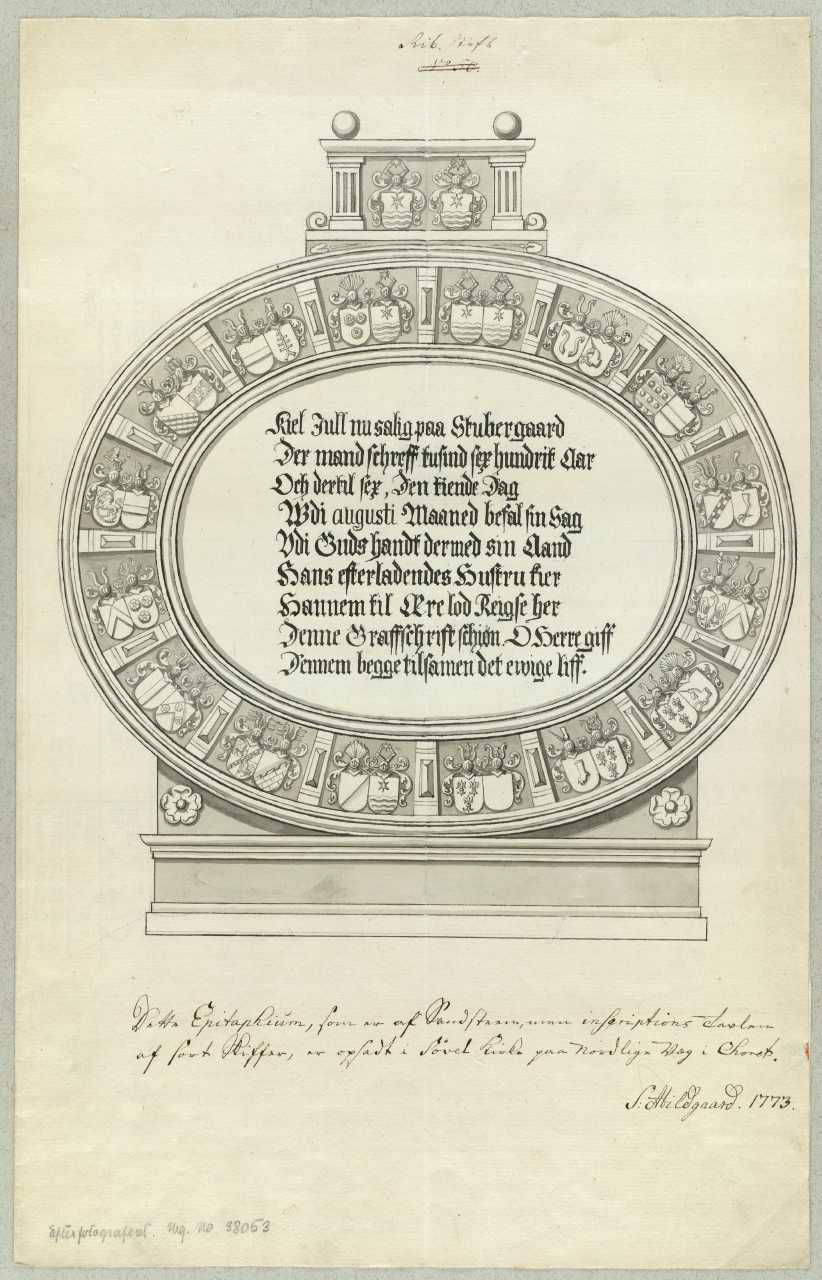 Rib. Stift
Kiel Jull nu salig paa Stubergaard
Der mand schreff tusind sex hundrit Aar
Och dertil sex, Den tiende Dag
Wdi augusti Maaned befal sin Sag
Vdi Guds handt dermed sin Aand
Hans efterladendes Hustru kier
Hannem til Ære lod Reigse her
Denne Graffschrift schiøn. O Herre giff
Dennem begge tilsamen det ewige liff.
Dette Epitaphium, som er af Sandsteen, men inscriptions Tavlen
af sort Skiffer, er opsadt i Søvel Kirke paa Nordlige Væg i Choret.
S: Abildgaard. 1773.
Efter fotograferet. Neg. No 38053